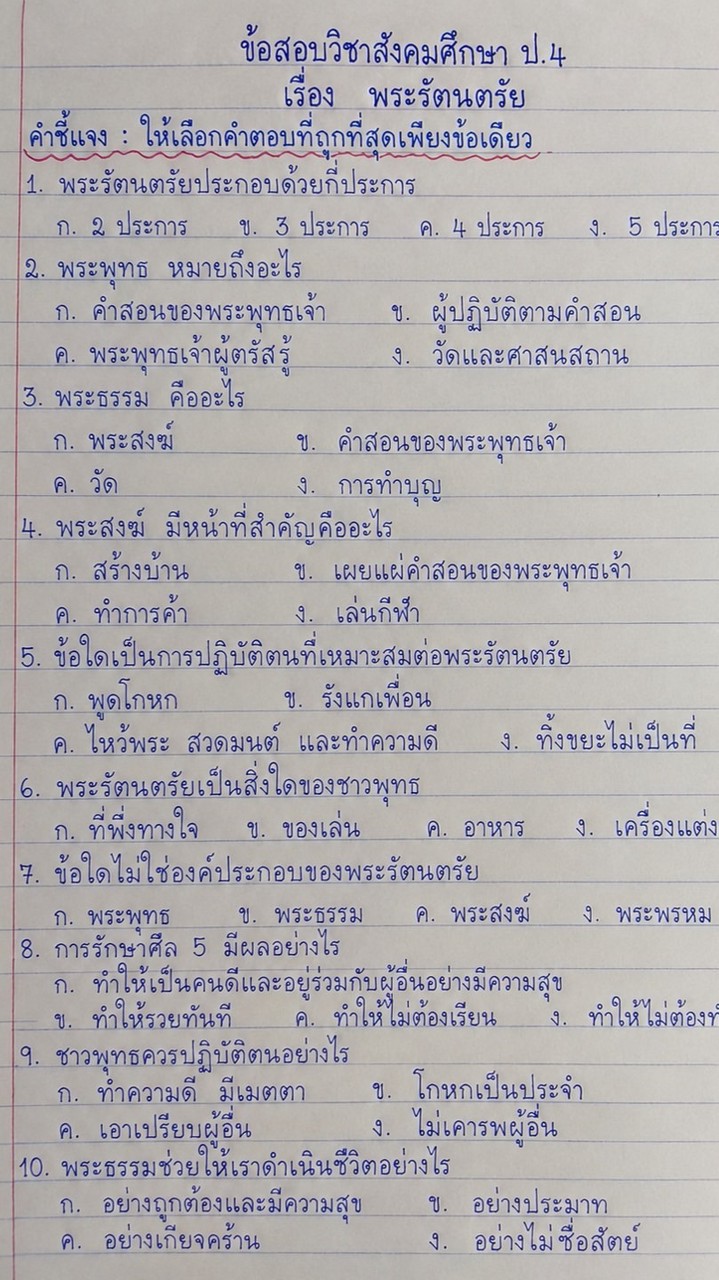 ข้อสอบวิชาสังคมศึกษา ป.4
เรื่อง พระรัตนตรัย
คำชี้แจง : ให้เลือกคำตอบที่ถูกที่สุดเพียงข้อเดียว
1. พระรัตนตรัยประกอบด้วยกี่ประการ
ก. 2 ประการ ข. 3 ประการ ค. 4 ประการ ง. 5 ประการ
2. พระพุทธ หมายถึงอะไร
ก. คำสอนของพระพุทธเจ้า ข. ผู้ปฏิบัติตามคำสอน
ค. พระพุทธเจ้าผู้ตรัสรู้ ง. วัดและศาสนสถาน
3. พระธรรม คืออะไร
ก. พระสงฆ์ ข. คำสอนของพระพุทธเจ้า
ค. วัด ง. การทำบุญ
4. พระสงฆ์ มีหน้าที่สำคัญคืออะไร
ก. สร้างบ้าน ข. เผยแผ่คำสอนของพระพุทธเจ้า
ค. ทำการค้า ง. เล่นกีฬา
5. ข้อใดเป็นการปฏิบัติตนที่เหมาะสมต่อพระรัตนตรัย
ก. พูดโกหก ข. รังแกเพื่อน
ค. ไหว้พระ สวดมนต์ และทำความดี ง. ทิ้งขยะไม่เป็นที่
6. พระรัตนตรัยเป็นสิ่งใดของชาวพุทธ
ก. ที่พึ่งทางใจ ข. ของเล่น ค. อาหาร ง. เครื่องแต่ง
7. ข้อใดไม่ใช่องค์ประกอบของพระรัตนตรัย
ก. พระพุทธ ข. พระธรรม ค. พระสงฆ์ ง. พระพรหม
8. การรักษาศีล 5 มีผลอย่างไร
ก. ทำให้เป็นคนดีและอยู่ร่วมกับผู้อื่นอย่างมีความสุข
ข. ทำให้รวยทันที ค. ทำให้ไม่ต้องเรียน ง. ทำให้ไม่ต้อง
9. ชาวพุทธควรปฏิบัติตนอย่างไร
ก. ทำความดี มีเมตตา ข. โกหกเป็นประจำ
ค. เอาเปรียบผู้อื่น ง. ไม่เคารพผู้อื่น
10. พระธรรมช่วยให้เราดำเนินชีวิตอย่างไร
ก. อย่างถูกต้องและมีความสุข ข. อย่างประมาท
ค. อย่างเกียจคร้าน ง. อย่างไม่ซื่อสัตย์